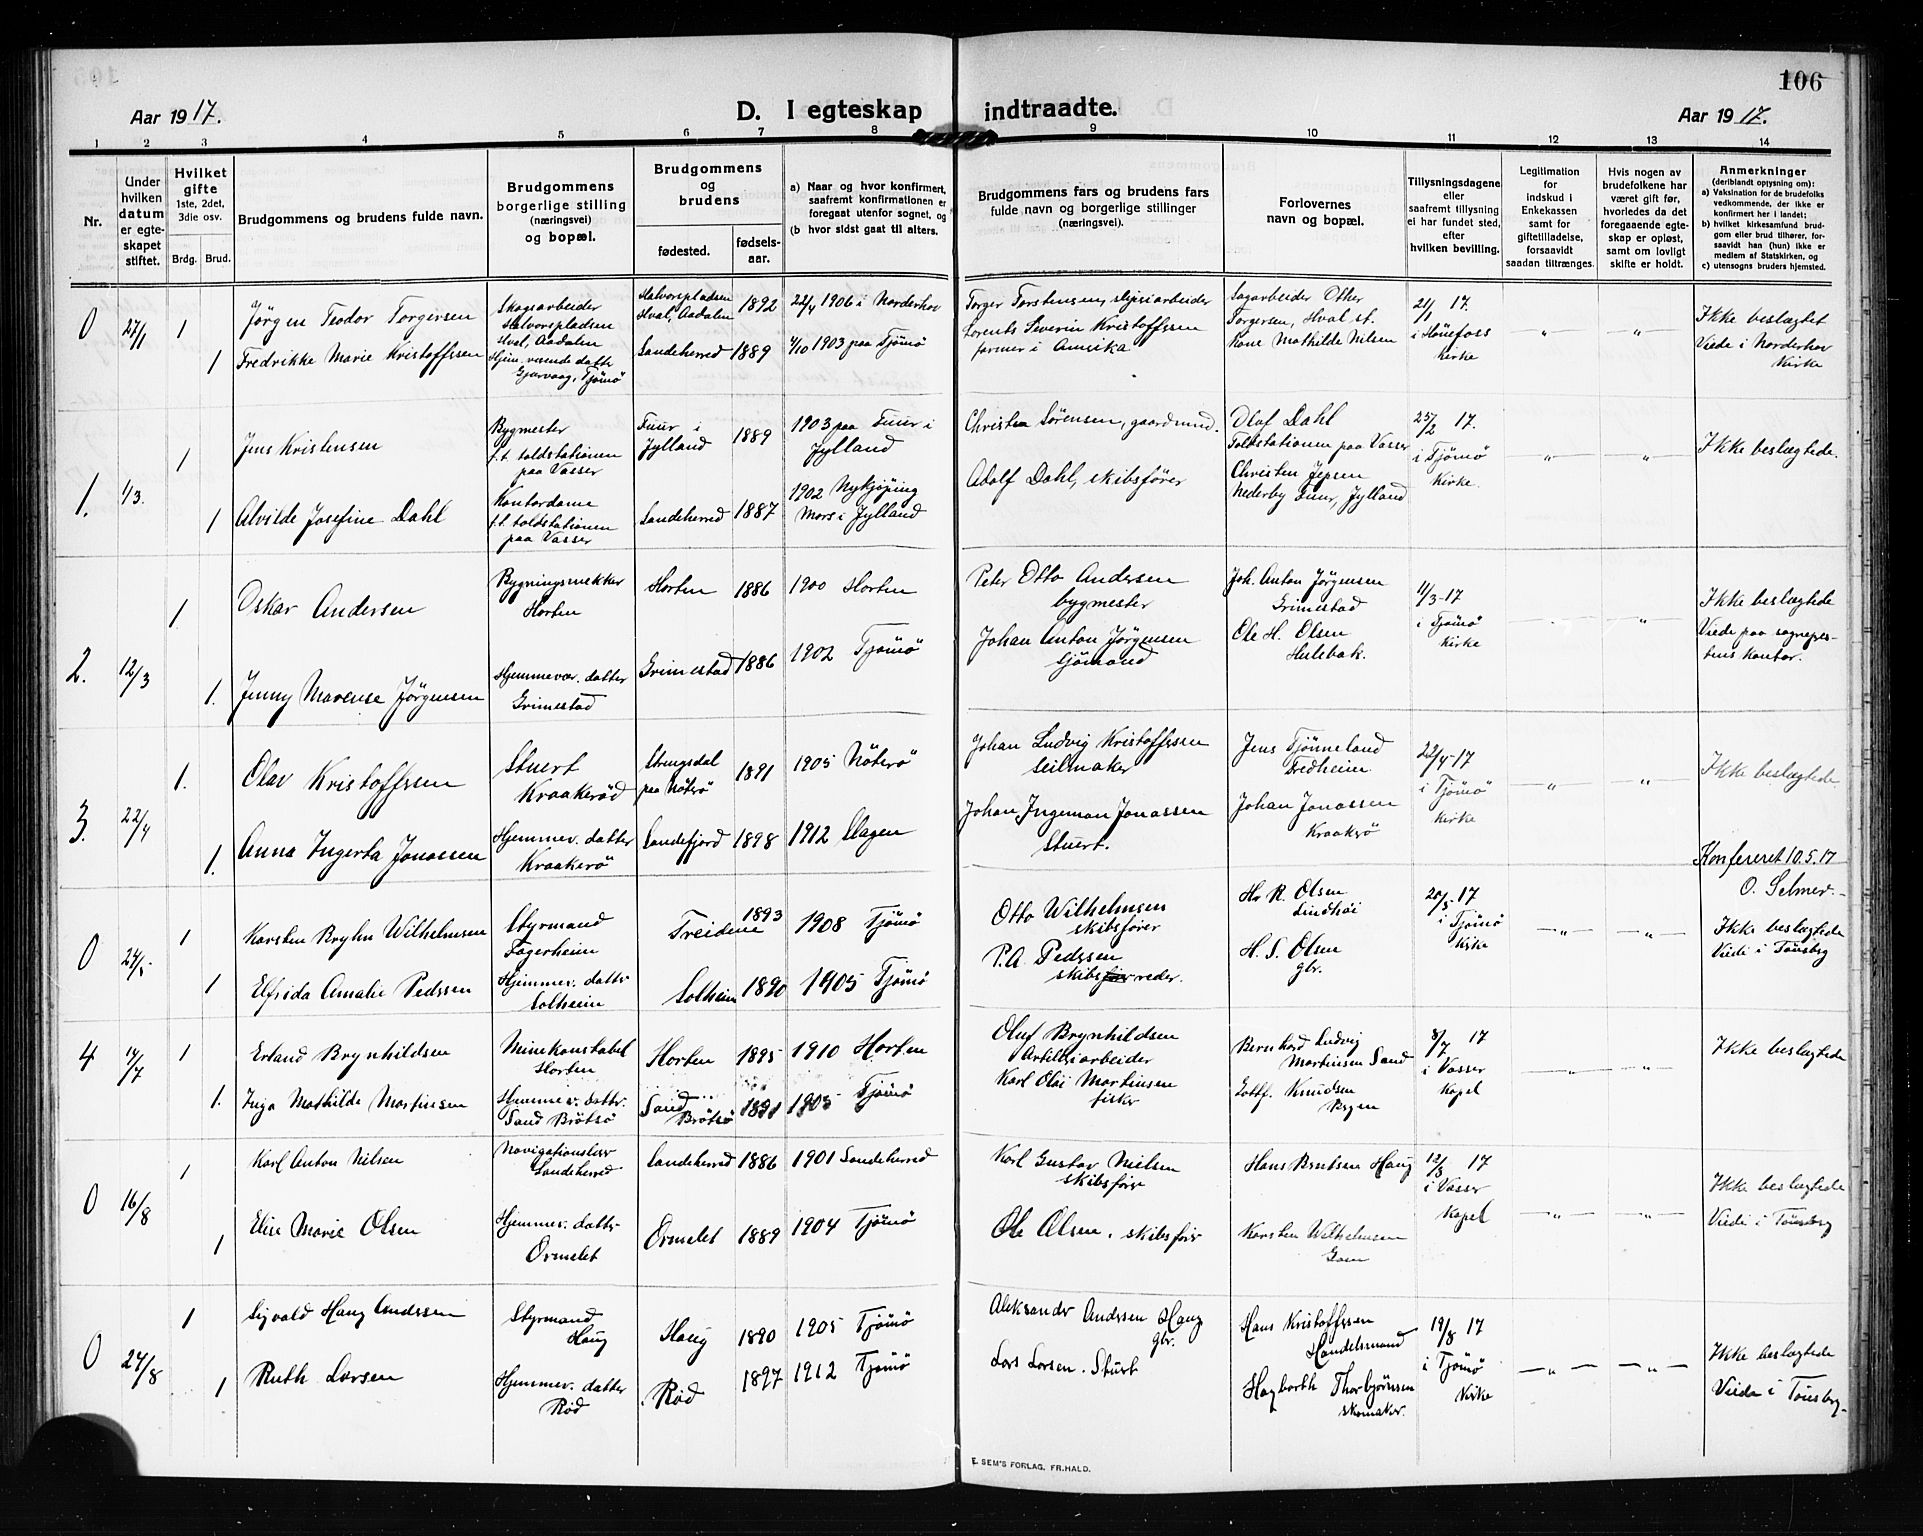 106
Aar 1917.
D. I egteskap indtraadte.
Aar 1917.
1 2 3 4 5 6 7 8 9 10 11 12 13 14
Nr.
Under hvilken datum er egteskapet stiftet.
Hvilket gifte 1ste, 2det, 3die osv.
Brdg. Brud.
Brudgommens og brudens fulde navn.
Brudgommens borgerlige stilling (næringsvei) og bopæl.
Brudgommens og brudens
fødested. fødselsaar.
a) Naar og hvor konfirmert, saafremt konfirmationen er foregaat utenfor sognet, og
(b hvor sidst gaat til alters.
Brudgommens fars og brudens fars fulde navn og borgerlige stillinger (næringsvei).
Forlovernes navn og bopæl.
Tillysningsdagene eller saafremt tillysning ei har fundet sted, efter hvilken bevilling.
Legitimation for indskud i Enkekassen samt for giftetilladelse, forsaavidt saadan tiltrænges.
Hvis nogen av brudefolkene har været gift før, hvorledes da det foregaaende egteskap er opløst, samt om lovligt skifte er holdt.
Anmerkninger
(deriblandt opjysning om):
a) Vaksination for de brudefolks vedkommende, der ikke er konfirmert her i landet;
b) hvilket kirkesamfund brudgom eller brud tilhører, forsaavidt han (hun) ikke er medlem af Statskirken, og
c) utensogns bruders hjemsted.
0 27/1 1 Jörgen Teodor Torgersen
Skogsarbeider Halvorspladsen Hval, Aadalen
Halvorspladsen Hval, Aadalen 1892
22/4 1906 i Norderhov
Torger Torstensen, slipsiarbeider
Sagarbeider Other Torgersen, Hval st.
21/1 17. i Hönefoss Kirke
" "
Ikke beslegtet Viede i Norderhov Kirke
1 Fredrikke Marie Kristoffssen
Hjem. værende datter Gjervaag, Tjömö
Sandeherred 1889
4/10 1903 paa Tjömö
Lorents Severin Kristoffssen farmer i Amerika
Kone Mathilde Nilsen
1. 1/3. 1 Jens Kristensen
Bygmester f.t. toldstationen paa Vasser
Fuur i Jylland 1889
1903 paa Fuur i Jylland
Christen Sörensen, gaardmand.
Olaf Dahl Toldstationen paa Vasser
25/2 17. i Tjömö Kirke.
" "
Ikke beslegtede.
1 Alvilde Josefine Dahl
Kontordame f.t. toldstationen paa Vasser
Sandeherred 1887
1902 Nykjöping Mors i Jylland
Adolf Dahl, skibsförer
Christen Jepsen Nederby Fuur, Jylland
2. 12/3 1. Oskar Andersen
Horten
Horten 1886
1900 Horten
Peter Otto Andersen bygmester
Joh. Anton Jörgensen Grimestad
11/3-17 i Tjömö Kirke
" "
Ikke beslegtede Viede paa sogneprestens kontor.
1. Jenny Marense Jörgensen
Hjemmevær. datter Grimestad
Grimestad 1886
1902 Tjömö
Johan Anton Jörgensen sjömand
Ole H. Olsen Hulebak.
3. 22/4 1. Olav Kristoffssen
Stuert Kraakeröd
Strengsdal paa Nöterö 1891
1905 Nöterö
Johan Ludvig Kristoffssen seilmaker
Jens Tjönneland Fredheim
22/4-17 i Tjömö Kirke
" "
Ikke beslegtede
1. Anna Ingerta Jonassen
Hjemmev. datter Kraakerö
Sandefjord 1898
1912 Slagen
Johan Ingeman Jonassen Stuert.
Johan Jonassen Kraakrö
Konfereret 10.5.17 O. Selmer
0 24/5 1 Karsten Bryhn Wilhelmsen
Styrmand Fagerheim
Treidene 1893
1908 Tjömö
Otto Wilhelmsen skibsförer
H. R. Olsen Lindhöi
20/5-17 i Tjömö Kirke
" "
Ikke beslegtede Viede i Tönsberg
1 Elfrida Amalie Pedssen
Hjemmev. datter Solheim
Solheim 1890
1905 Tjömö
P.A. Pedssen skibsreder.
H. S. Olsen gbr.
4 14/7 1 Erland Brynhildsen
Minekonstabel Horten
Horten 1895
1910 Horten
Oluf Brynhildsen Artilleriarbeider
Bernhard Ludvig Martinsen Sand
8/7 17 i Vasser Kapel
" "
Ikke beslegtede
1. Inga Mathilde Martinsen
Hjemmev. datter. Sand Brötsö
Sand Brötsö 1891
1905 Tjömö
Karl Olai Martinsen fisker
Gottf. Knudsen
0 16/8 1 Karl Anton Nilsen
Navigationslærer Sandeherred
Sandeherred 1886
1901 Sandeherred
Karl Gustav Nielsen skibsförer
Hans Berntsen Haug
12/8 17 i Vasser Kapel
" "
Ikke beslegtede Viede i Tönsberg
1 Elise Marie Olsen
Hjemmev. datter Ormelet
Ormelet 1889
1904 Tjömö
Ole Olsen. skibsförer
Karsten Wilhelmsen
0 24/8 1 Sigvald Haug Anderssen
Styrmand Haug
Haug 1890
1905 Tjömö
Aleksander Anderssen Haug gbr.
Hans Kristoffssen Handelsmand
19/8 17 i Tjömö Kirke
" "
Ikke beslegtede Viede i Tönsberg
1 Ruth Larsen
Hjemmev. datter Röd
Röd 1897
1912 Tjömö
Lars Larsen. Stuert
Hagbarth Thorbjörnsen skomaker.
E. SEM'S FORLAG, FR.HALD.